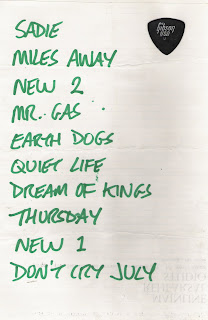 SADIE
Gibson
USA
MILES AWAY
NEW 2
MR. GAS
EARTH DOGS
QUIET LIFE
DREAM OF KINGS
THURSDAY
NEW 1
DON'T CRY JULY